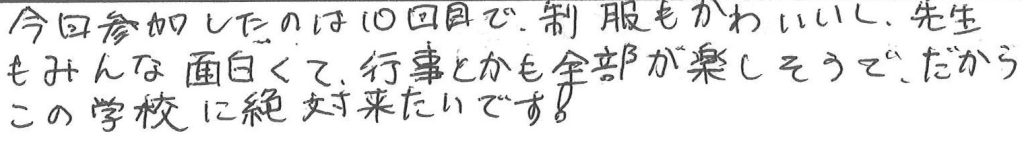 今回参加したのは10回目で、制服もかわいいし、先生
もみんな面白くて、行事とかも全部が楽しそうで、だから
この学校に絶対来たいです!